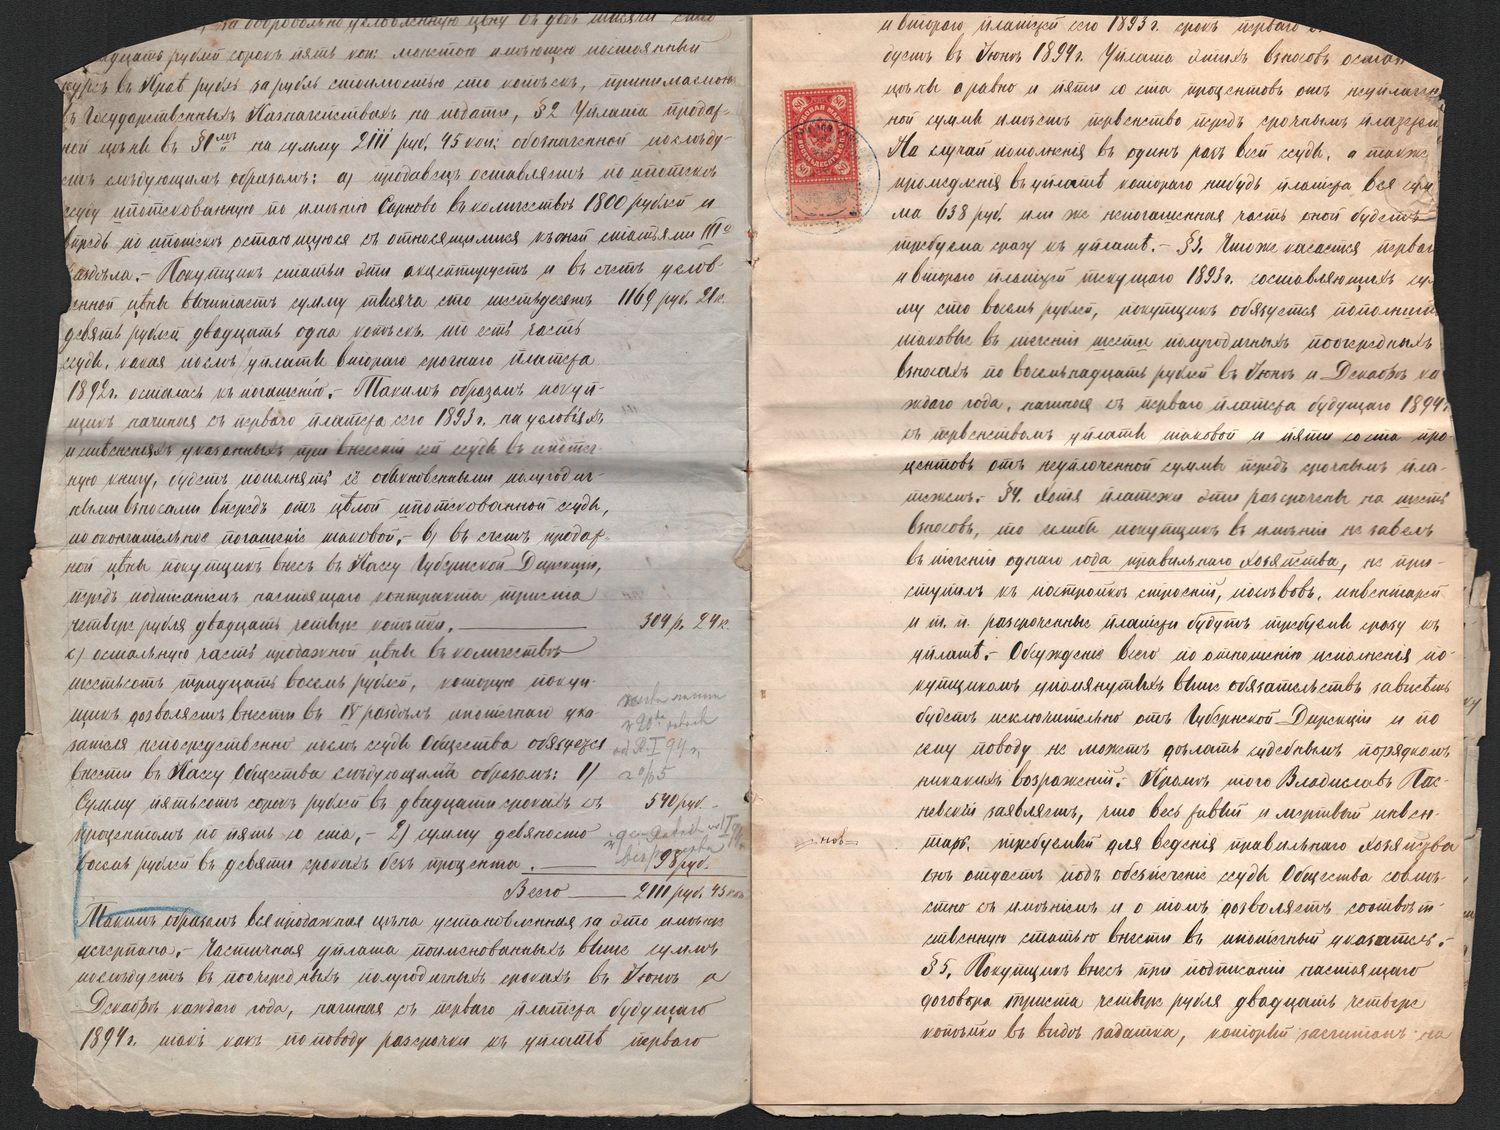 за добровольно условленную цѣну въ двѣ тысячи сто
надцать рублей сорокъ пять коп: монетою имѣющею постоянный
курсъ въ Краѣ рубль за рубль стоимостью сто копѣекъ, принимаемою
въ Государственныхъ Казначействахъ на подати, §2 Уплата продаж-
ной цѣны въ §1мъ на сумму 2111 руб. 45 коп: обозначенной послѣду-
етъ слѣдующимъ образомъ: а) продавецъ оставляетъ по ипотекѣ
ссуду ипотекованную по имѣнію Сарново въ количествѣ 1800 рублей и
впредь по ипотекѣ остающуюся съ относящимися къ ней статьями III го
раздѣла.- Покупщикъ статьи эти акцептируетъ и въ счетъ услов-
енной цѣны вычитаетъ сумму тысяча сто шестьдесятъ 1169 руб. 21 к.
девять рублей двадцать одна копѣекъ то есть часть
ссуды, какая послѣ уплаты втораго срочнаго платежа
1892 г. осталась къ погашенію.- Такимъ образомъ покуп-
щикъ начиная съ перваго платежа сего 1893 г. на условіяхъ
указанныхъ при внесеніи сей ссуды въ ипотеч-
ную книгу, будетъ пополнять её обыкновенными полугодич-
ными взносами впредь отъ цѣлой ипотекованной ссуды,
по окончательное погашеніе таковой.- в) въ счетъ продаж-
ной цѣны покупщикъ внесъ въ Кассу Губернской Дирекціи,
передъ подписаніемъ настоящаго контракта триста
четыре рубля двадцать четыре копѣйки. 304 р. 24 к.
с) остальную часть продажной цѣны въ количествѣ
шестьсотъ тридцать восемь рублей, которую покуп-
щикъ дозволяетъ внести въ IV раздѣлъ ипотечнаго ука-
зателя непосредственно послѣ ссуды Общества обязуется
внести въ Кассу Общества слѣдующимъ образомъ: 1)
Сумму пятьсотъ сорокъ рублей въ двадцати срокахъ съ 540 руб.-
процентомъ по пять со ста,- 2) сумму девяносто
восемь рублей въ девяти срокахъ безъ процента. 98 руб.
Всего 2111 руб. 45 коп
Такимъ образомъ вся продажная цѣна установленная за это имѣніе
исчерпана.- Частичная уплата поименованныхъ выше суммъ
послѣдуетъ въ поочередныхъ полугодичныхъ срокахъ въ Іюнѣ а
Декабрѣ каждаго года, начиная съ перваго платежа будущаго
1894 г. такъ какъ по поводу разсрочки къ уплатѣ перваго
и втораго платежей сего 1893 г. срокъ перваго
будетъ въ Іюнѣ 1894 г. Уплата этихъ взносовъ
цѣны а равно и пяти со ста процентовъ отъ неуплачен
ной суммы имѣетъ первенство передъ срочнымъ платежем
На случай пополненія въ одинъ разъ всей ссуды, а также
промедленія въ уплатѣ котораго нибудь платежа вся сум
ма 638 руб. или же непогашенная часть оной будетъ
требуема сразу къ уплатѣ.- §3. Чтоже касается перваго
и втораго платежей текущаго 1893 г. составляющихъ сум
му сто восемь рублей, покупщикъ обязуется пополнить
таковые въ теченіи шести полугодичныхъ поочередныхъ
взносахъ по восемьнадцать рублей въ Іюнѣ и Декабрѣ ка-
ждаго года, начиная съ перваго платежа будущаго 1894 г.
съ первенствомъ уплаты таковой и пяти со ста про-
центовъ отъ неуплоченной суммы передъ срочнымъ пла-
тежемъ.- §4. Хотя платежи эти разсрочены на шесть
взносовъ, то еслибы покупщикъ въ имѣніи не завелъ
въ теченіи однаго года правильнаго хозяйства, не при-
ступилъ къ постройкѣ строеній, посѣвовъ, инвентарей
и т. п. разсроченные платежи будутъ требуемы сразу къ
уплатѣ.- Обужденіе всего по отношенію исполненія по-
купщикомъ упомянутыхъ выше обязательствъ зависѣть
будетъ исключительно отъ Губернской Дирекціи и по
сему поводу не можетъ дѣлать судебнымъ порядкомъ
никакихъ возраженій.- Кромѣ того Владиславъ Пас-
невскій заявляетъ, что весь живый и мертвый инвен-
тарь, требуемый для веденія правильнаго хозяйства
нов
онъ отдастъ подъ обезпеченіе ссуды Общества совмѣ-
стно съ имѣніемъ и о томъ дозволяетъ соотвѣт-
ственную статью внести въ ипотечный указатель.-
§5, Покупщикъ внесъ при подписаніи настоящаго
договора триста четыре рубля двадцать четыре
копѣйки въ видѣ задатка, который засчитанъ на
80
80